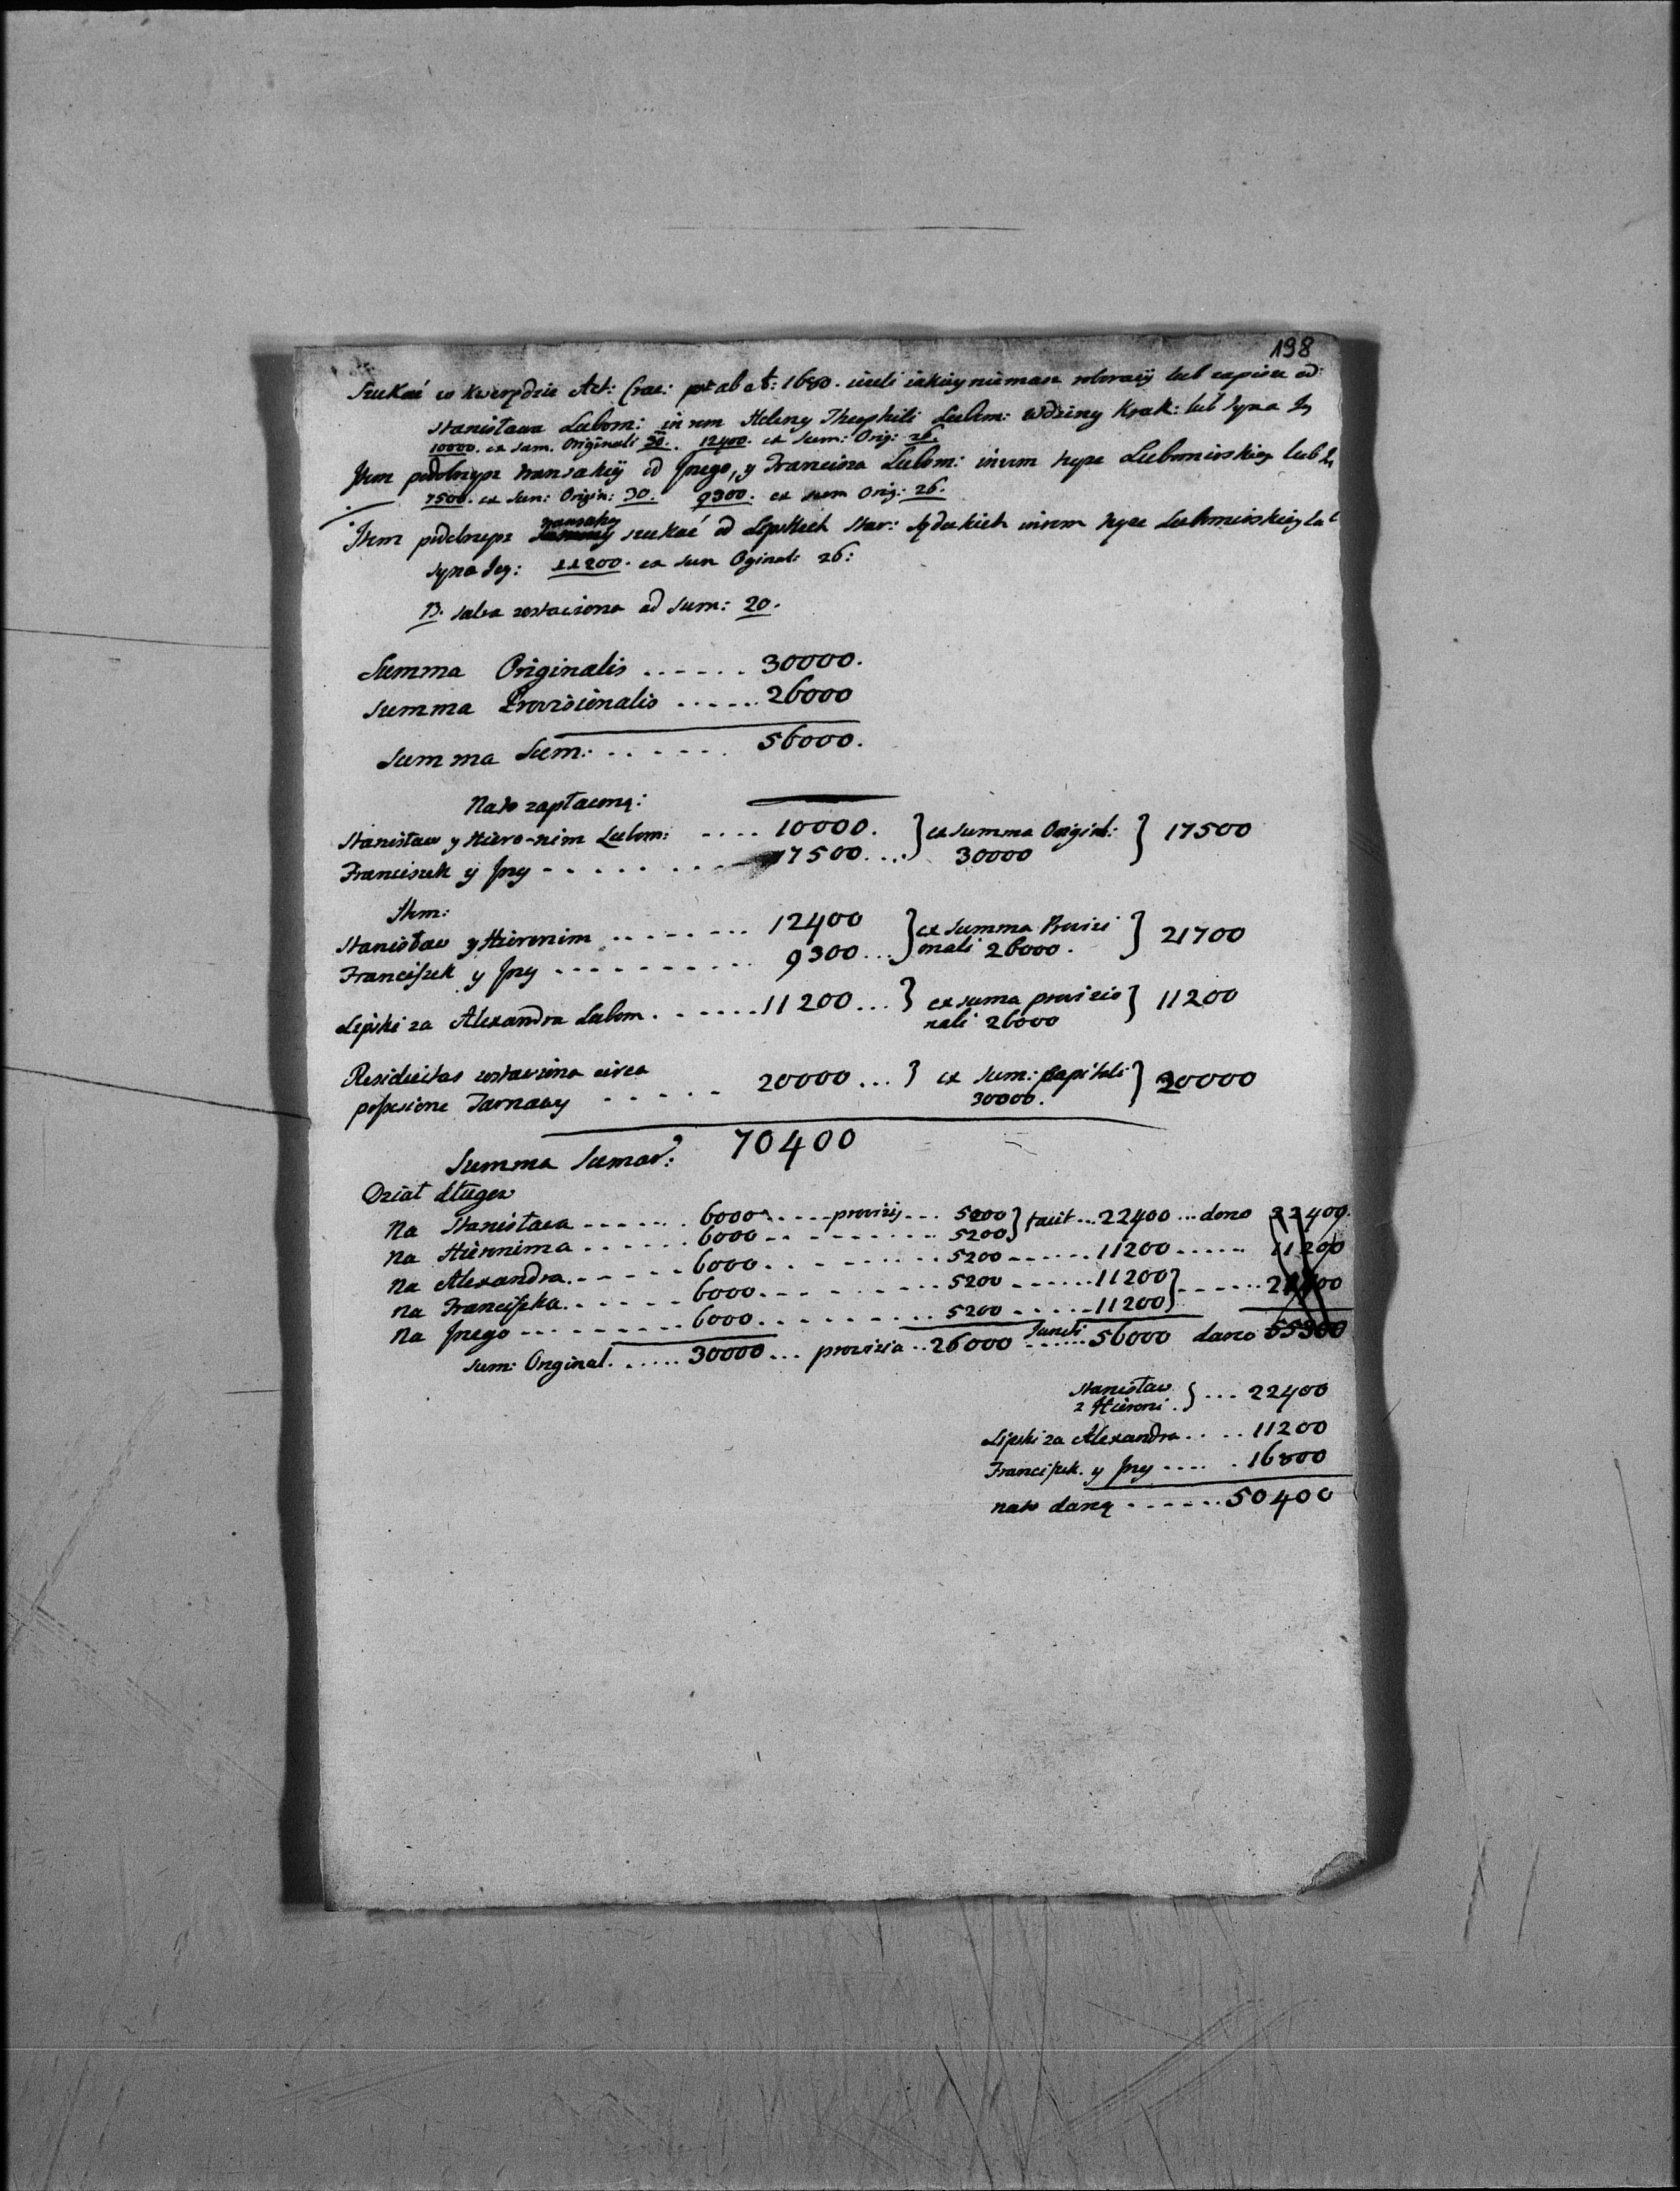 198
Szukać w kwerędzie Act: Crac: ab A: 1680. ieżeli iakiey niemasz roboracij lub zapisu od
Stanisława Lubom: in rem Heleny Theophili Lubom: Wdziny Krak: lub syna Jey
10000. ex sum. Originali 30. 12400. ex sum: Orig: 26.
Item podobneyże transakcij od Jrzego, y Franciszka Lubom: in rem teyże Lubomirskiey lub
7500. ex sum: Origin: 30. 9300. ex sum Orig: 26.
Item podobneyże transakcy szukać od Lipskich Star: Sądeckich in rem teyże Lubomirskiey lub
syna Jey: 11200. ex sum Oginali 26:
B. salva zostawiona ad sum: 20.
Summa Originalis ...... 30000.
Summa Provisionalis ...... 26000
Summa Sum: ...... 56000.
Na to zapłaconą:
Stanisław y Hiero-nim Lubom: .... 10000. } ex summa Originl: } 17500
Franciszek y Jrzy - - - - - - - 7500 .... 30000
Item:
Stanisław y Hieronim ........ 12400 } ex Summa Provisi } 21700
Franciszek y Jrzy .......... 9300 ... onali 26000.
Lipski za Alexandra Lubom. ...... 11200 ... } ex suma provisio } 11200
nali 26000
Residuitas zostawiona circa
possesione Tarnawy ..... 20000 ... } ex sum: Capitali } 20000
30000.
Summa Sumar: 70400
Dział długow
Na Stanisława ...... 6000 .... provizij ... 5200 } facit ... 22400 ... dano 22400.
Na Hieronima ...... 6000 ......... 5200
Na Alexandra ...... 6000 ......... 5200 ...... 11200 ...... 11200
Na Franciszka ...... 6000 ......... 5200 ...... 11200 } ......
Na Jrzego ......... 6000 ......... 5200 ...... 11200
Sum: Original. ..... 30000 ... provizia .. 26000 ...... 56000 dano 55300
Stanisław
z Hieroni. } ... 22400
Lipski za Alexandra .... 11200
Franciszek. y Jrzy ..... 16800
na to daną ...... 50400